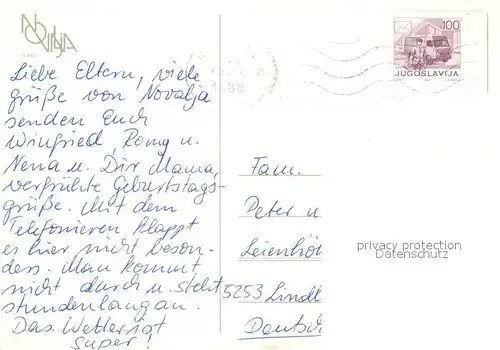 NOVALJA
Liebe Eltern, viele
grüße von Novalja
senden Euch
Winfried, Romy u.
Nena u. Dir Mama,
verfrühte Geburtstags-
grüße. Mit dem
Telefonieren klappt
es hier nicht beson-
ders. Man kommt
nicht durch u. steht
stundenlang an.
Das Wetter ist
super!
100
JUGOSLAVIJA
Fam.
Peter u
Leienhö
5253 Lindl
Deutsc
privacy protection
Datenschutz